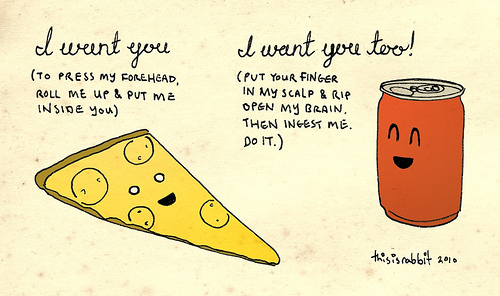 I want you
(TO PRESS MY FOREHEAD,
ROLL ME UP & PUT ME
INSIDE YOU)
I want you too!
(PUT YOUR FINGER
IN MY SCALP & RIP
OPEN MY BRAIN.
THEN INGEST ME.
DO IT.)
thisisrabbit 2010